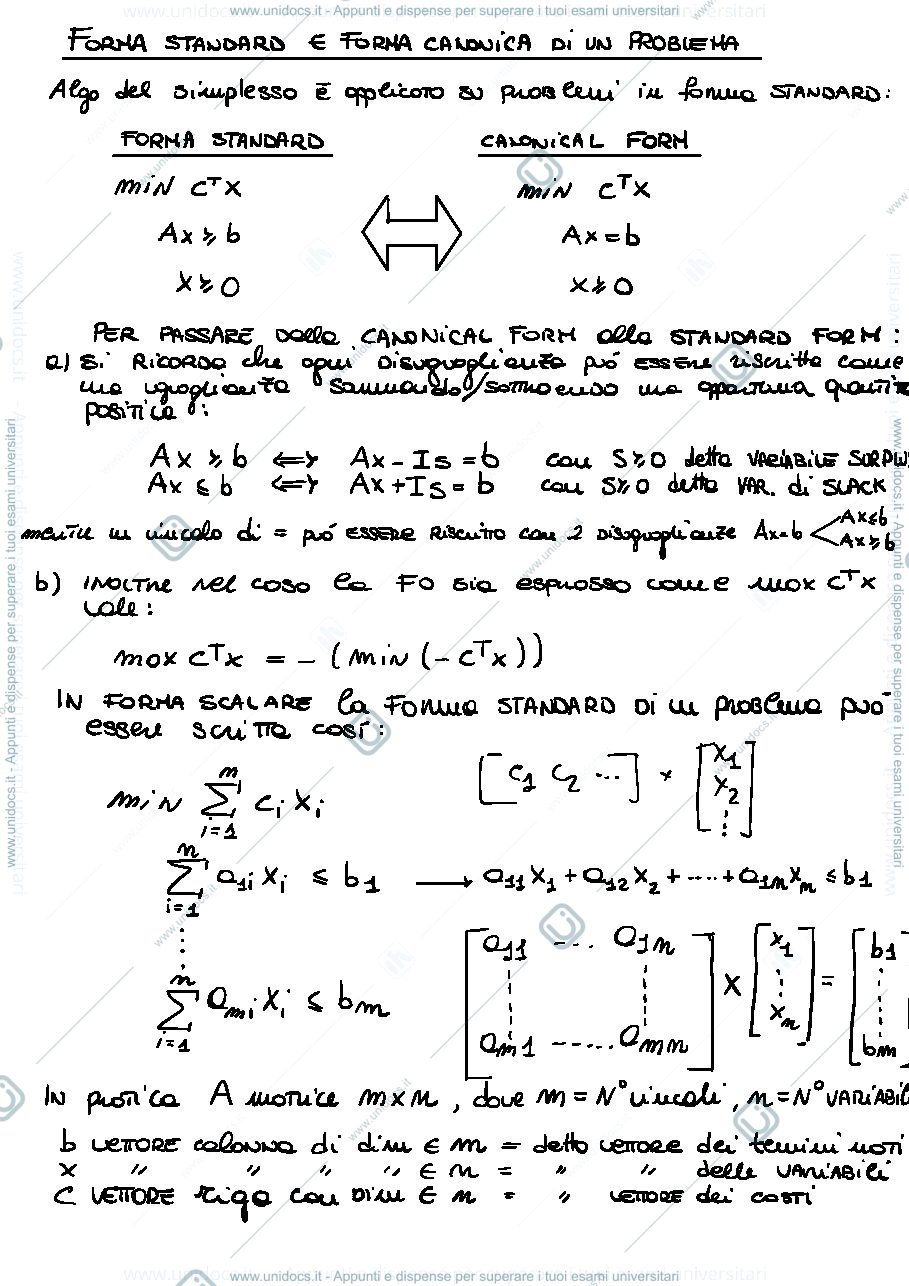 www.unidocs.it - Appunti e dispense per superare i tuoi esami universitari
FORMA STANDARD E FORMA CANONICA DI UN PROBLEMA
Algo del simplesso è applicato su problemi in forma STANDARD:
FORMA STANDARD CANONICAL FORM
min cᵀx min cᵀx
Ax ≥ b Ax = b
x ≥ 0 x ≥ 0
PER PASSARE dalla CANONICAL FORM alla STANDARD FORM:
a) Si RICORDA che ogni DISUGUAGLIANZA può ESSERE riscritta come
una uguaglianza sommando/sottraendo una opportuna quantità
positiva:
Ax ≥ b ⟺ Ax - Is = b con S≥0 detta VARIABILE SURPLUS
Ax ≤ b ⟺ Ax + Is = b con S≥0 detta VAR. di SLACK
mentre un vincolo di = può ESSERE RISCRITTO con 2 DISUGUAGLIANZE Ax=b < Ax≤b
Ax≥b
b) INOLTRE nel caso la FO sia espresso come max cᵀx
vale:
max cᵀx = - (min (-cᵀx))
IN FORMA SCALARE la FORMA STANDARD DI un problema può
essere scritta così:
min ∑ᵢ₌₁ⁿ cᵢ xᵢ [c₁ c₂ ...] * [x₁ x₂ ⋮]
∑ᵢ₌₁ⁿ a₁ᵢ xᵢ ≤ b₁ → a₁₁x₁ + a₁₂x₂ + .... + a₁ₙxₙ ≤ b₁
⋮
∑ᵢ₌₁ⁿ aₘᵢ xᵢ ≤ bₘ [a₁₁ ... a₁ₙ ⋮ ⋮ aₘ₁ ..... aₘₙ] x [x₁ ⋮ xₙ] = [b₁ ⋮ bₘ
IN pratica A matrice m x n, dove m = N° vincoli, n = N° VARIABILI
b VETTORE colonna di dim ∈ m = detto vettore dei termini noti
x " " " " ∈ n = " " delle VARIABILI
C VETTORE riga con DIM ∈ n = " VETTORE dei costi
www.unidocs.it - Appunti e dispense per superare i tuoi esami universitari